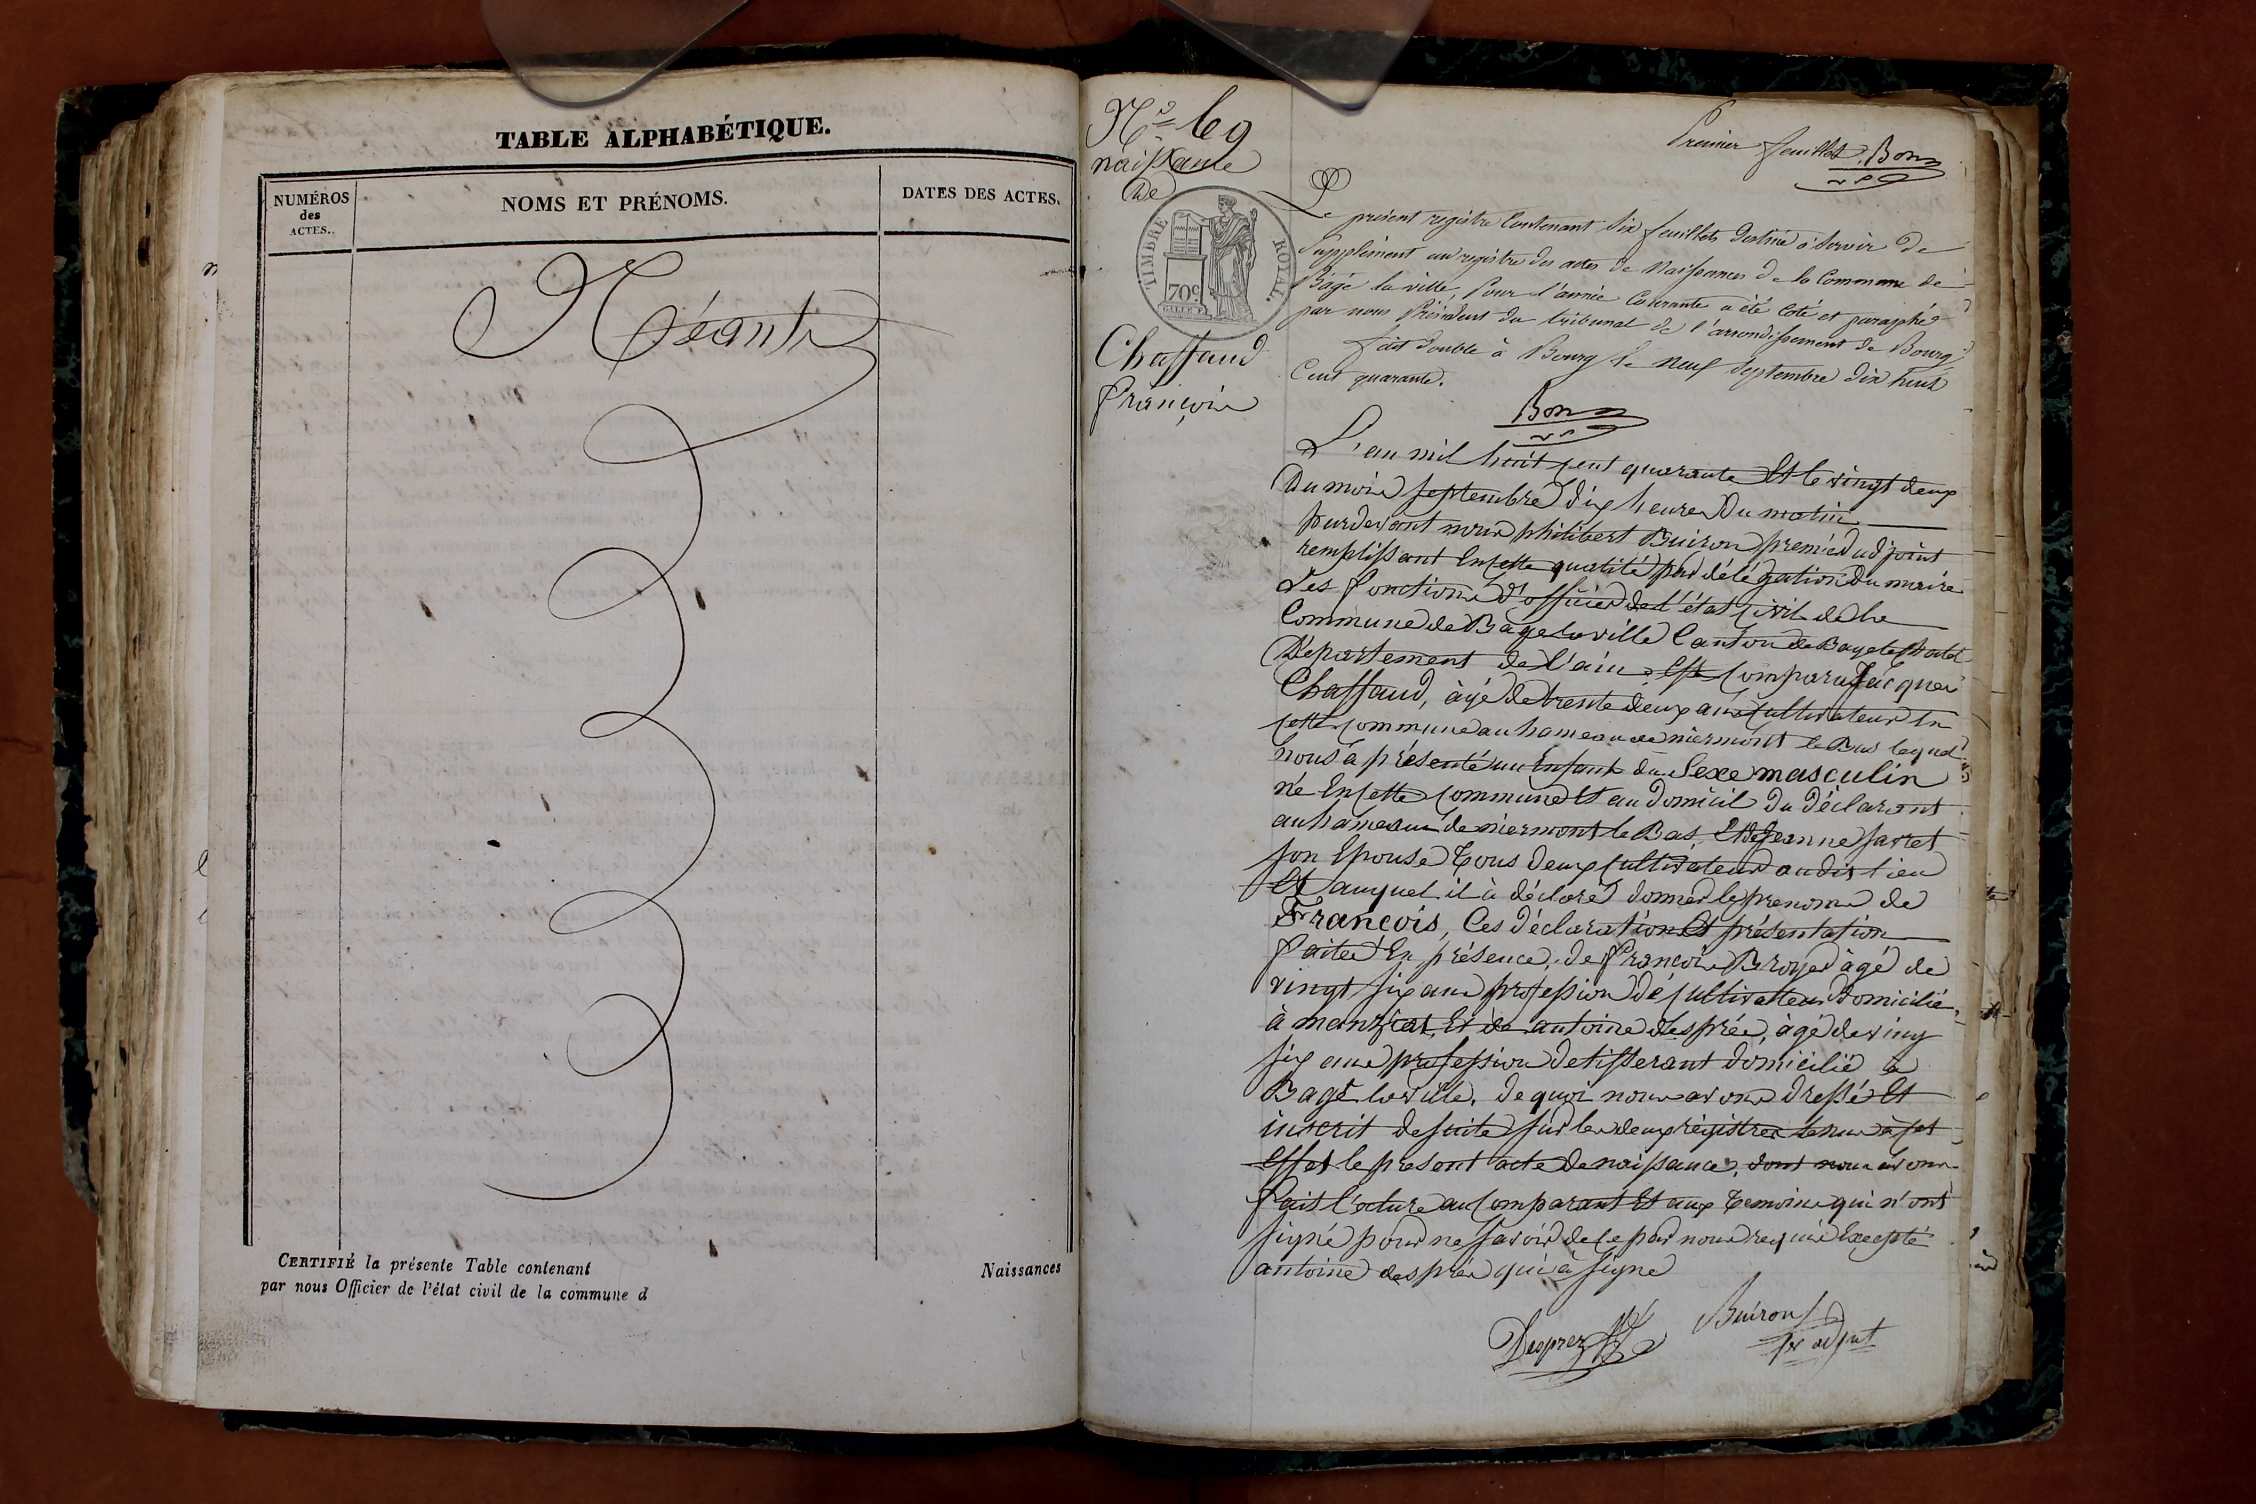 TABLE ALPHABÉTIQUE.
NUMÉROS
des
ACTES.
NOMS ET PRÉNOMS.
DATES DES ACTES.
Néant
CERTIFIÉ la présente Table contenant Naissances
par nous Officier de l'état civil de la commune d
Nº 69
naissance
de
TIMBRE ROYAL.
70c
Chaffaud
François
Premier feuillet. Bon
Le présent registre contenant six feuillets destiné à servir de
supplément au registre des actes de Naissances de la Commune de
Bâgé la ville, pour l'année Courante a été coté et paraphé
par nous Président du tribunal de l'arrondissement de Bourg
fait double à Bourg le neuf septembre dix huit
Cent quarante.
Bon
L'an mil huit cent quarante Et le vingt deux
Du mois septembre dix heures Du matin
pardevant nous philibert Buiron premier adjoint
remplissant En cette qualité par délégation Du maire
Les fonctions d'officier de l'état civil de la
Commune de Bagé la ville Canton de Bagé le chatel
Département de l'ain, Est comparu Jacques
Chaffaud, âgé de trente deux ans Cultivateur En
cette commune au hameau de niermont le Bas lequel
nous à présenté un Enfant du Sexe masculin
né En cette commune Et au Domicil Du Déclarant
au hameau de niermont le Bas, Et de Jeanne favret
son Epouse Tous deux cultivateurs au dit lieu
Et auquel il à déclaré donner le prenom de
François, Ces déclaration Et présentation
faites En présence, de François Broyer âgé de
vingt six ans profession de cultivateur Domicilié
à manziat, Et de antoine després, âgé de ving
six ans profession de tisserant domicilié à
Bagé la ville, de quoi nous avons dressé Et
inscrit de suite sur les deux régistres tenus à cet
Effet le present acte de naissance, dont nous avons
fait l'ecture au Comparant Et aux Temoins qui n'ont
signé pour ne savoir de ce par nous requis Excepté
antoine després qui à signé
Desprez
Buiron
1er adjnt